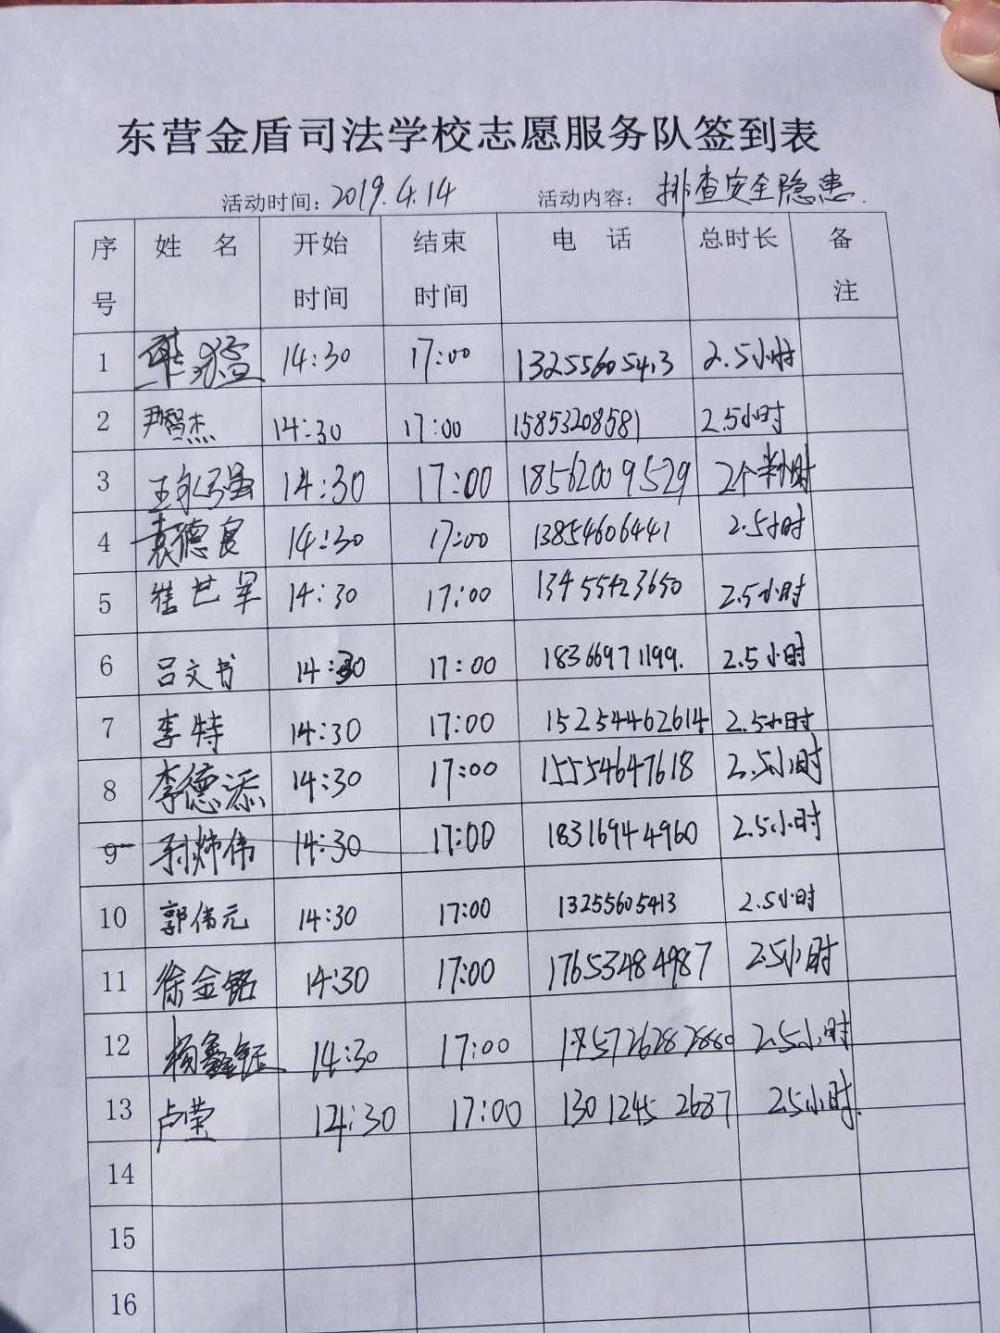 东营金盾司法学校志愿服务队签到表
活动时间：2019.4.14 活动内容：排查安全隐患.
序号 姓名 开始时间 结束时间 电话 总时长 备注
1 14:30 17:00 13255605413 2.5小时
2 尹智杰 14:30 17:00 15853208581 2.5小时
3 王永强 14:30 17:00 18562009529 2个半小时
4 袁德良 14:30 17:00 13854606441 2.5小时
5 崔世军 14:30 17:00 13455423650 2.5小时
6 吕文书 14:30 17:00 18366971199. 2.5小时
7 李特 14:30 17:00 15254462614 2.5小时
8 李德添 14:30 17:00 15554647618 2.5小时
9 14:30 17:00 18316944960 2.5小时
10 郭伟元 14:30 17:00 13255605413 2.5小时
11 徐金铭 14:30 17:00 17653484987 2.5小时
12 杨鑫钰 14:30 17:00 2.5小时
13 卢莹 14:30 17:00 13012452687 2.5小时.
14
15
16